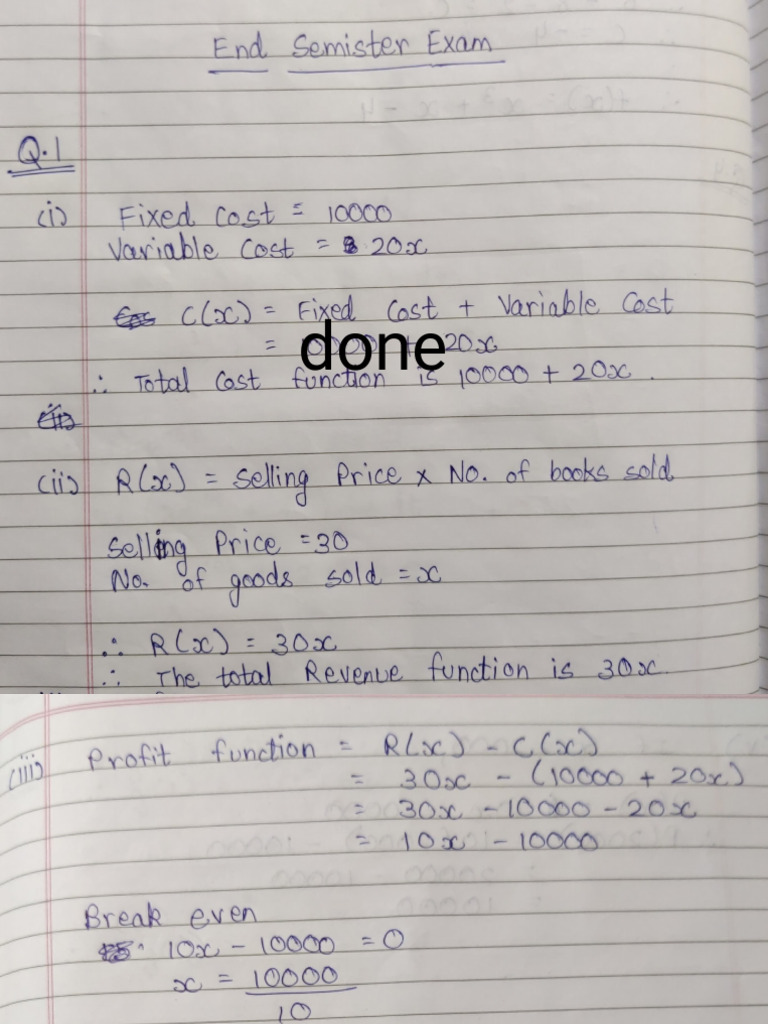 End Semister Exam
Q.1
(i) Fixed Cost = 10000
Variable Cost = 20x
C(x) = Fixed Cost + Variable Cost
= 20x
done
∴ Total Cost function is 10000 + 20x.
(ii) R(x) = Selling Price x No. of books sold
Selling Price = 30
No. of goods sold = x
∴ R(x) = 30x
∴ The total Revenue function is 30x.
(iii) Profit function = R(x) - C(x)
= 30x - (10000 + 20x)
= 30x - 10000 - 20x
= 10x - 10000
Break even
10x - 10000 = 0
x = 10000
10